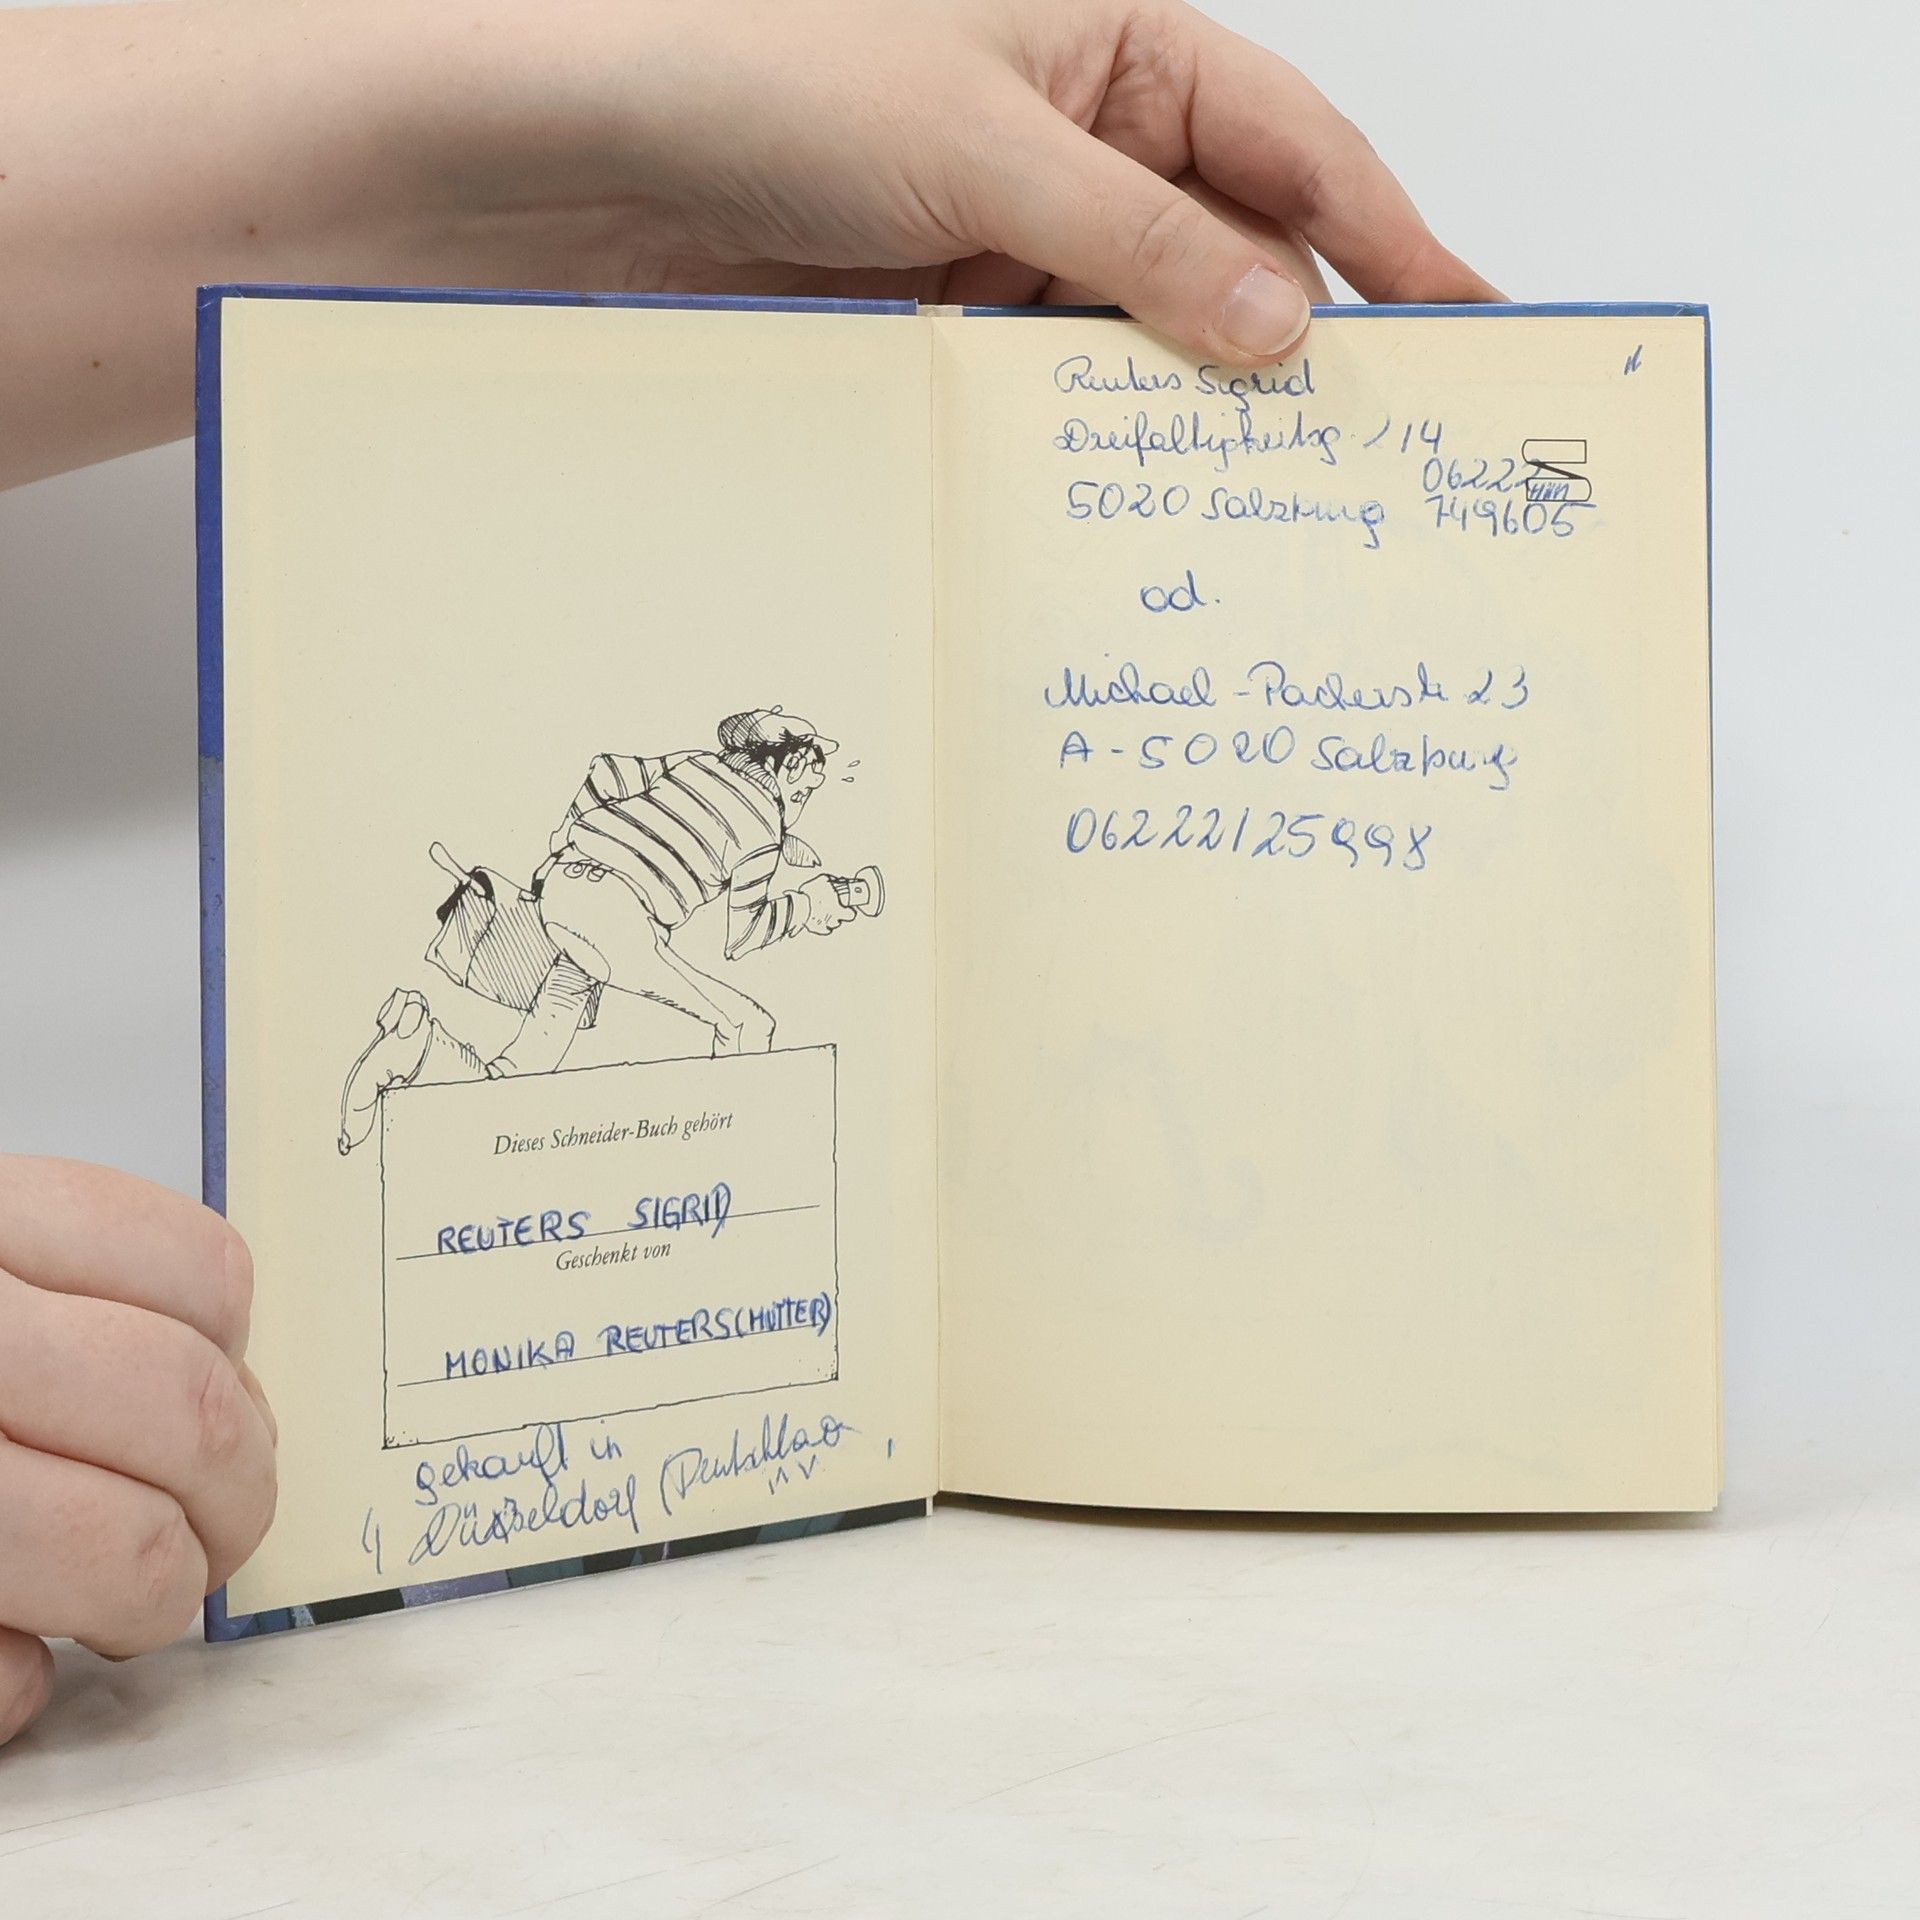 Dieses Schneider-Buch gehört
REUTERS SIGRID
Geschenkt von
MONIKA REUTERS (MUTTER)
gekauft in
Düsseldorf (Deutschland
Reuters Sigrid
Dreifaltigkeitsg. / 14
06222
5020 Salzburg 749605
od.
Michael-Pacherstr 23
A-5020 Salzburg
06222/25998